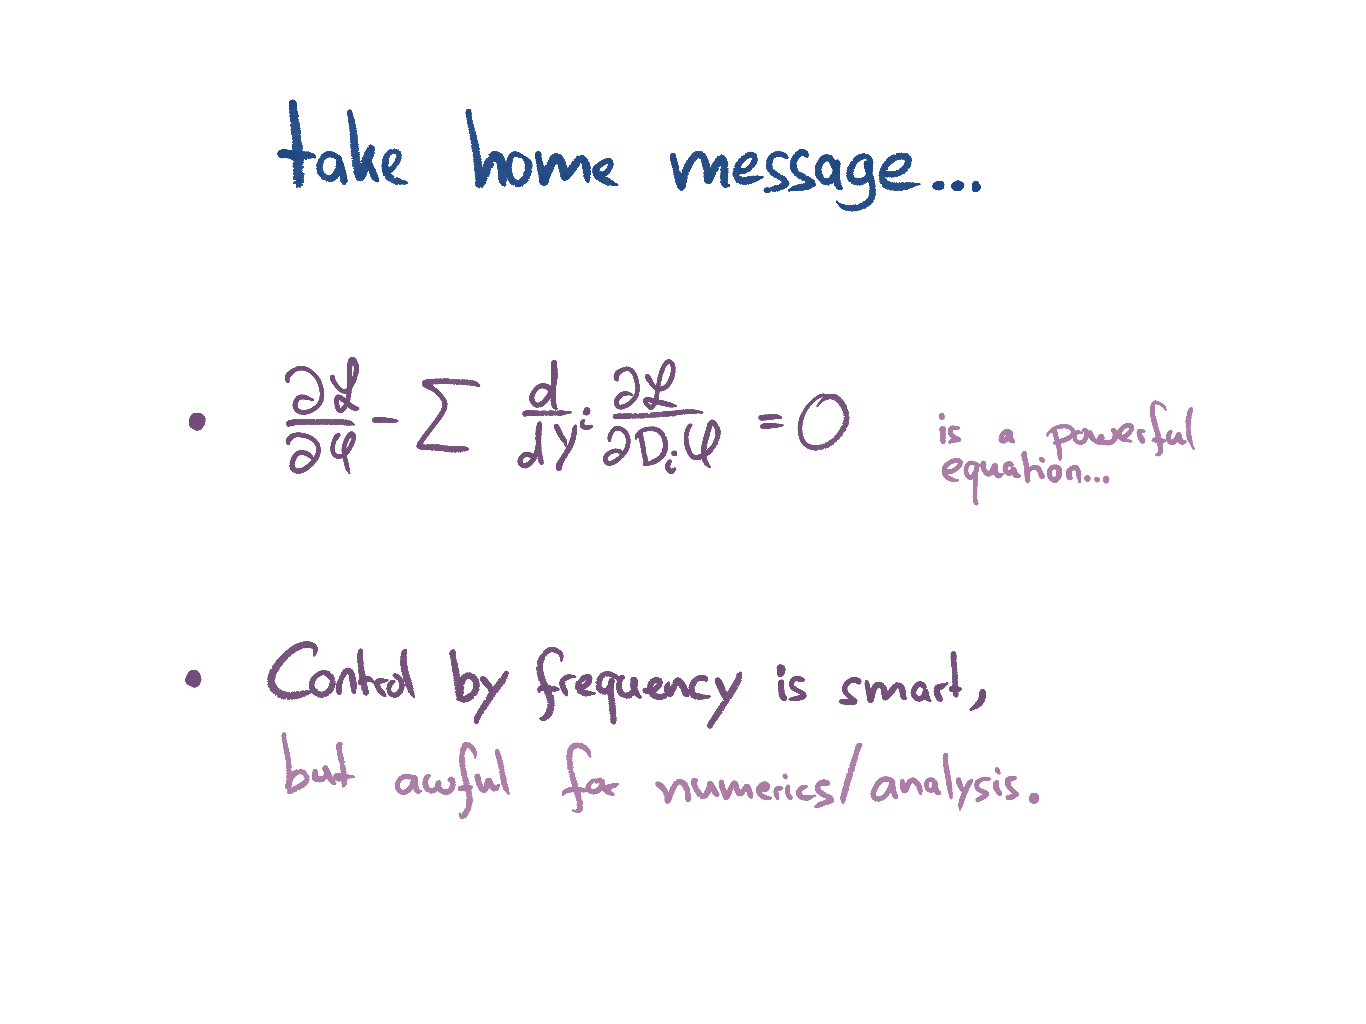 take home message...
• ∂ℒ/∂φ - ∑ d/dyⁱ ∂ℒ/∂Dᵢφ = 0 is a powerful
equation...
• Control by frequency is smart,
but awful for numerics/analysis.